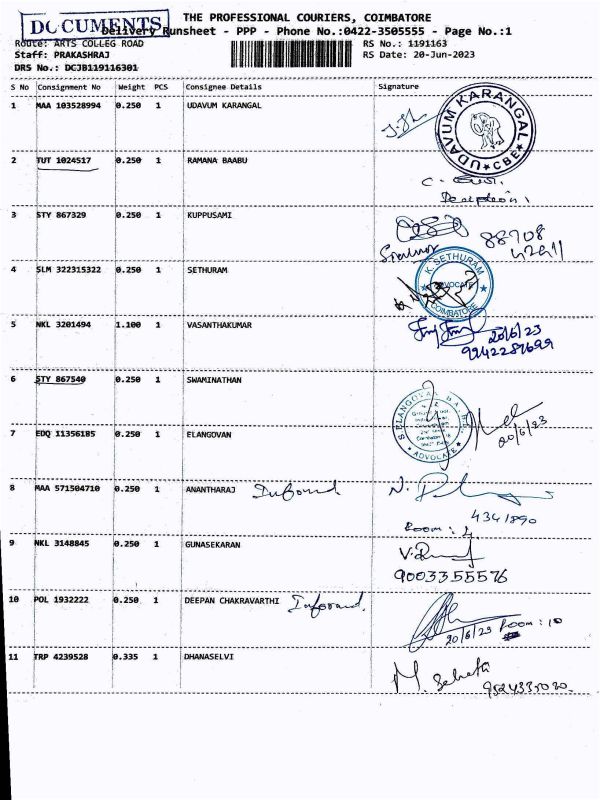 DOCUMENTS
THE PROFESSIONAL COURIERS, COIMBATORE
Delivery Runsheet - PPP - Phone No.:0422-3505555 - Page No.:1
Route: ARTS COLLEG ROAD
RS No.: 1191163
Staff: PRAKASHRAJ
RS Date: 20-Jun-2023
DRS No.: DCJB119116301
S No Consignment No Weight PCS Consignee Details Signature
1 MAA 103528994 0.250 1 UDAVUM KARANGAL
UDAVUM KARANGAL CBE
2 TUT 1024517 0.250 1 RAMANA BAABU
3 STY 867329 0.250 1 KUPPUSAMI
88708
K. SETHURAM ADVOCATE COIMBATORE
4 SLM 322315322 0.250 1 SETHURAM
5 NKL 3201494 1.100 1 VASANTHAKUMAR
20/6/23
6 STY 867540 0.250 1 SWAMINATHAN
S. ELANGOVAN, B.A., B.L.
ADVOCATE
20/6/23
7 EDQ 11356185 0.250 1 ELANGOVAN
8 MAA 571504710 0.250 1 ANANTHARAJ
4341890
Room: 4
9 NKL 3148845 0.250 1 GUNASEKARAN
9003355576
10 POL 1932222 0.250 1 DEEPAN CHAKRAVARTHI
20/6/23 Room: 10
11 TRP 4239528 0.335 1 DHANASELVI